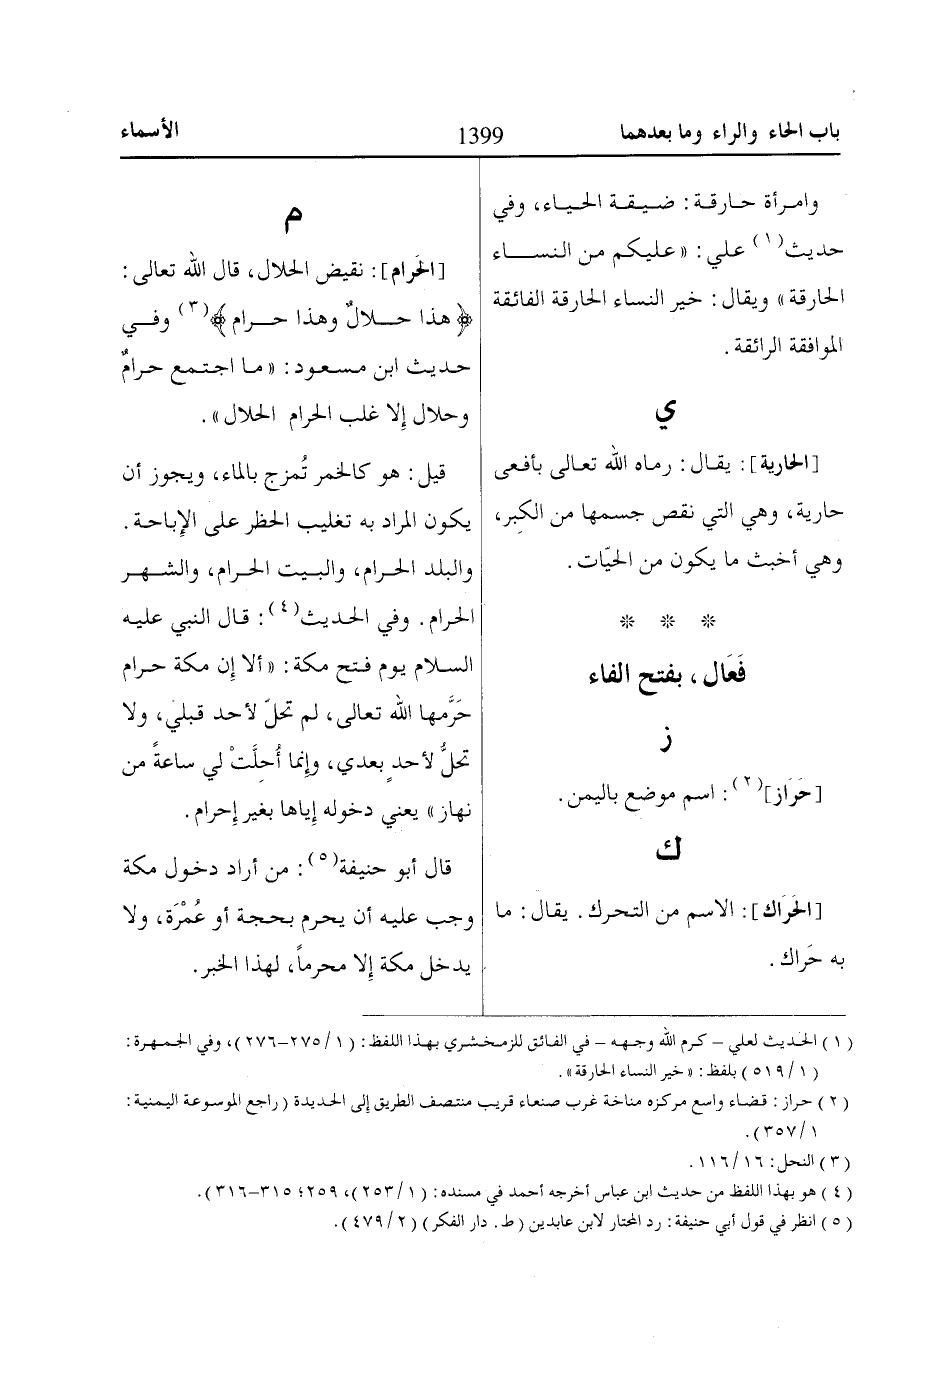 باب الحاء والراء وما بعدهما
1399
الأسماء
وامرأة حارقة: ضيقة الحياء، وفي
حديث(١) علي: «عليكم من النساء
الحارقة» ويقال: خير النساء الحارقة الفائقة
الموافقة الرائقة.
ي
[الحارية]: يقال: رماه الله تعالى بأفعى
حارية، وهي التي نقص جسمها من الكبر،
وهي أخبث ما يكون من الحيّات.
* * *
فَعَال، بفتح الفاء
ز
[حَرَاز](٢): اسم موضع باليمن.
ك
[الحَرَاك]: الاسم من التحرك. يقال: ما
به حَراك.
م
[الحَرام]: نقيض الحلال، قال الله تعالى:
﴿هذا حلالٌ وهذا حرام﴾(٣) وفي
حديث ابن مسعود: «ما اجتمع حرامٌ
وحلال إلا غلب الحرام الحلال».
قيل: هو كالخمر تُمزج بالماء، ويجوز أن
يكون المراد به تغليب الحظر على الإباحة.
والبلد الحرام، والبيت الحرام، والشهر
الحرام. وفي الحديث(٤): قال النبي عليه
السلام يوم فتح مكة: «ألا إن مكة حرام
حَرَّمها الله تعالى، لم تحلّ لأحد قبلي، ولا
تحلُّ لأحدٍ بعدي، وإنما أُحلَّتْ لي ساعةً من
نهار» يعني دخوله إياها بغير إحرام.
قال أبو حنيفة(٥): من أراد دخول مكة
وجب عليه أن يحرم بحجة أو عُمْرَة، ولا
يدخل مكة إلا محرماً، لهذا الخبر.
(١) الحديث لعلي – كرم الله وجهه – في الفائق للزمخشري بهذا اللفظ: (١/٢٧٥–٢٧٦)، وفي الجمهرة:
(١/٥١٩) بلفظ: «خير النساء الحارقة».
(٢) حراز: قضاء واسع مركزه مناخة غرب صنعاء قريب منتصف الطريق إلى الحديدة (راجع الموسوعة اليمنية:
١/٣٥٧).
(٣) النحل: ١٦/١١٦.
(٤) هو بهذا اللفظ من حديث ابن عباس أخرجه أحمد في مسنده: (١/٢٥٣)، ٢٥٩؛ ٣١٥–٣١٦).
(٥) انظر في قول أبي حنيفة: رد المحتار لابن عابدين (ط. دار الفكر) (٢/٤٧٩).